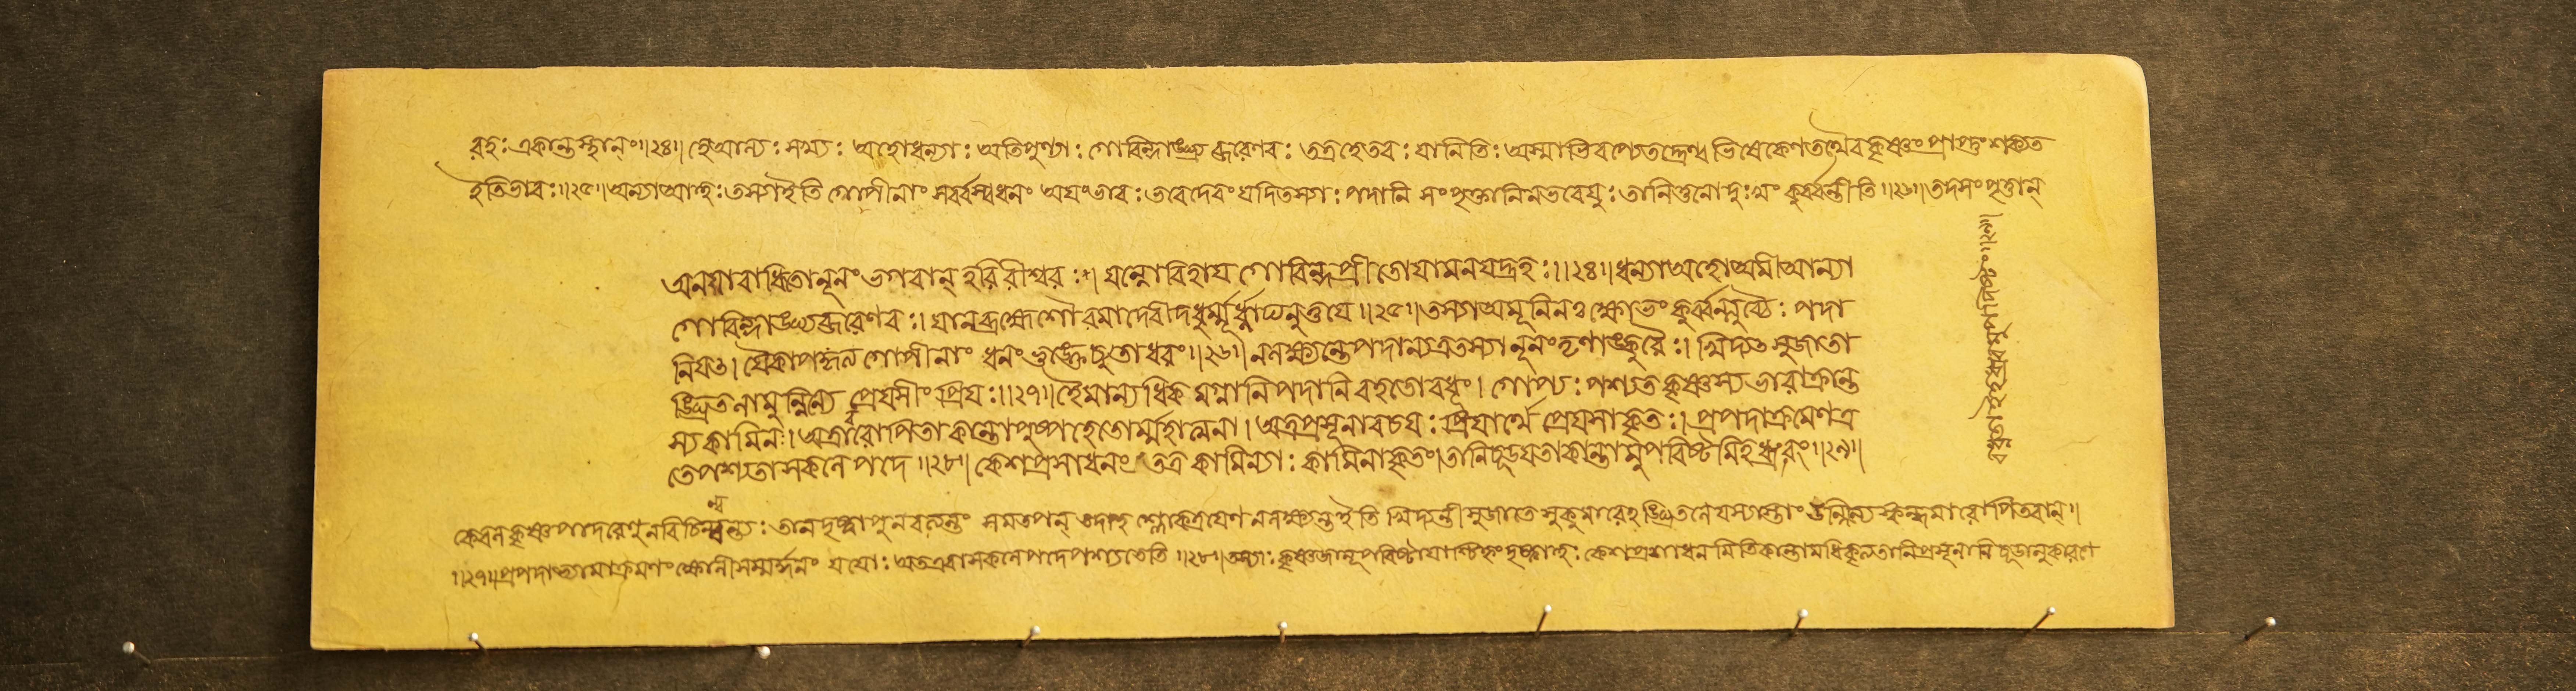 রহঃ একান্তস্থানং॥২৪॥ হে আল্যঃ সখ্যঃ অহোধন্যাঃ অতিপুণ্যাঃ গোবিন্দাঙ্ঘ্র্যব্জরেণবঃ তত্রহেতবঃ যানিতি অস্মাভিরপ্যেতদ্রেণ্বভিষেকেণতথৈব কৃষ্ণংপ্রাপ্তুং শক্যত
ইতিভাবঃ॥২৫॥ অন্যাআহুঃ তস্যাইতি গোপীনাং সর্ব্বস্বধনং অয়ংভাবঃ ভবেদেবং যদিতস্যাঃ পদানি সংপৃক্তানিনভবেয়ুঃ তানিত্তুনোদুঃখং কুর্ব্বন্তীতি॥২৬॥ তদসংপৃক্তান্
অনয়ারাধিতোনূনং ভগবান্ হরিরীশ্বরঃ। যন্নোবিহায় গোবিন্দঃপ্রীতোযামনযদ্রহঃ॥২৪॥ ধন্যাঅহোঅমীআল্যো
গোবিন্দাঙ্ঘ্র্যব্জরেণবঃ। যানব্রহ্মেশৌরমাদেবীদধুর্ম্মূর্ধ্ন্যঘনুত্তয়ে॥২৫॥ তস্যাঅমূনিনঃ ক্ষোভং কুর্ব্বন্ত্যুচ্চৈঃ পদা
নিযৎ। যৈকাপহৃত্য গোপীনাং ধনং ভুঙ্ক্তেচ্যুতাধরং॥২৬॥ ননক্ষ্যন্তেপদান্যত্রতস্যা নূনংতৃণাঙ্কুরৈঃ। খিদ্যত সুজাতা
ঙ্ঘ্রিতলামুন্নিন্যে প্রেয়সীং প্রিয়ঃ॥২৭॥ ইমান্যধিক মগ্নানিপদানি বহতোবধূং। গোপ্যঃ পশ্যত কৃষ্ণস্য ভারাক্রান্ত
স্য কামিনঃ। অত্রাবরোপিতাকান্তাপুষ্পহেতোর্ম্মহাত্মনা। অত্রপ্রসূনাবচয়ঃ প্রিয়ার্থে প্রেয়সাকৃতঃ। প্রপদাক্রমণে এ
তেপশ্যতাসকলে পদে॥২৮॥ কেশপ্রসাধনং ত্বত্র কামিন্যাঃ কামিনাকৃতং। তানিচূড়য়তাকান্তামুপবিষ্টমিহধ্রুবং॥২৯॥
কেবল কৃষ্ণপাদরেণুনবিচিন্বন্ত্যঃ তানদৃষ্ট্বাপুনর সমতপন্ তদাহ শ্লোকত্রয়েণ ননক্ষ্যন্তইতি খিদ্যন্তী সুজাতে সুকুমারেঽঙ্ঘ্রিতলে যস্যাস্তাং উন্নিন্যে স্কন্ধমারোপিতবান্॥
॥২৭॥ প্রপদাভ্যামাক্রমণং ক্ষোনীসম্মর্দ্দনং যয়োঃ অতএবাসকলেপদেপশ্যতেতি॥২৮॥ কৃষ্ণজানূপবিষ্টায়াশ্চিহ্নংদৃষ্ট্বাহুঃ কেশপ্রসাধনমিতিকান্তামধিকৃত্যতানিপ্রসূনানি চূড়ানুকারেণ